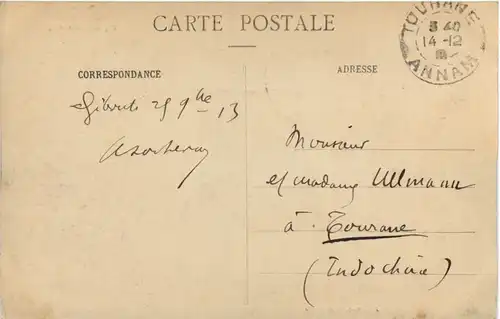 CARTE POSTALE
TOURANE
3 40
14-12
ANNAM
CORRESPONDANCE
ADRESSE
Djibouti 25 9bre 13
Monsieur
et madame Ullmann
à Tourane
(Indochine)